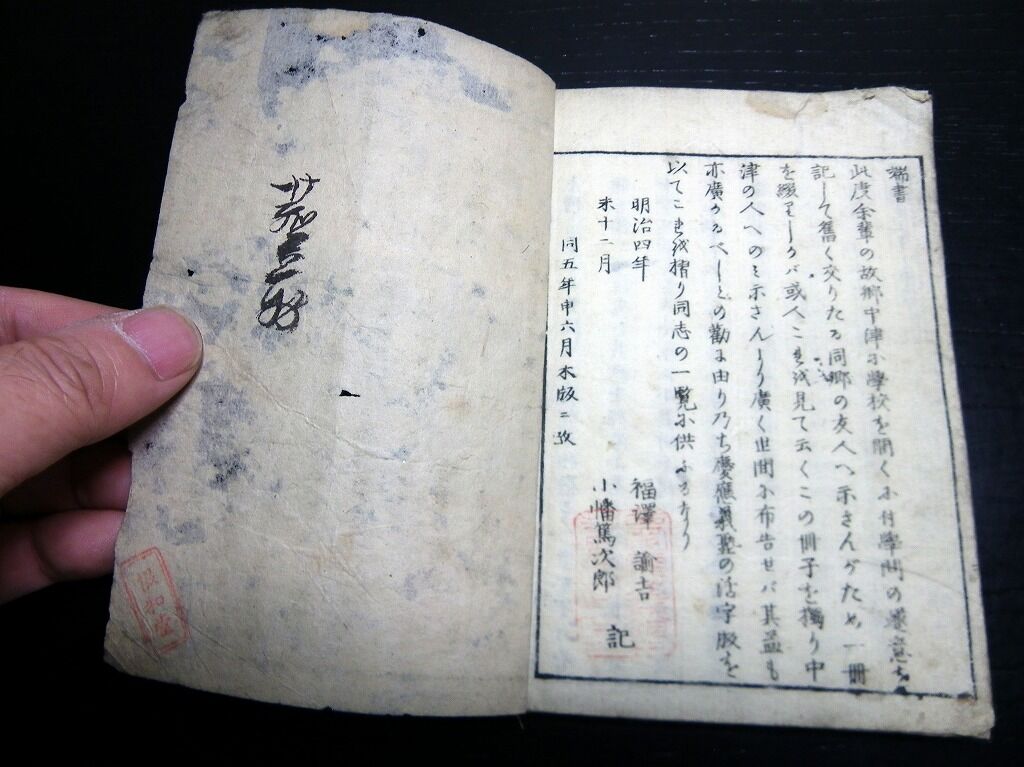 端書
此度余輩の故郷中津に學校を開くに付學問の趣意を
記して舊く交りたる同郷の友人へ示さんがため一冊
を綴りしかバ或人これを見て云くこの冊子を獨り中
津の人へのミ示さんより廣く世間に布告せバ其益も
亦廣かるべしとの勸に由り乃ち慶應義塾の活字版を
以てこれを摺り同志の一覧に供ふるなり
明治四年 福澤 諭吉
未十二月 小幡篤次郎
記
同五年申六月木版ニ改